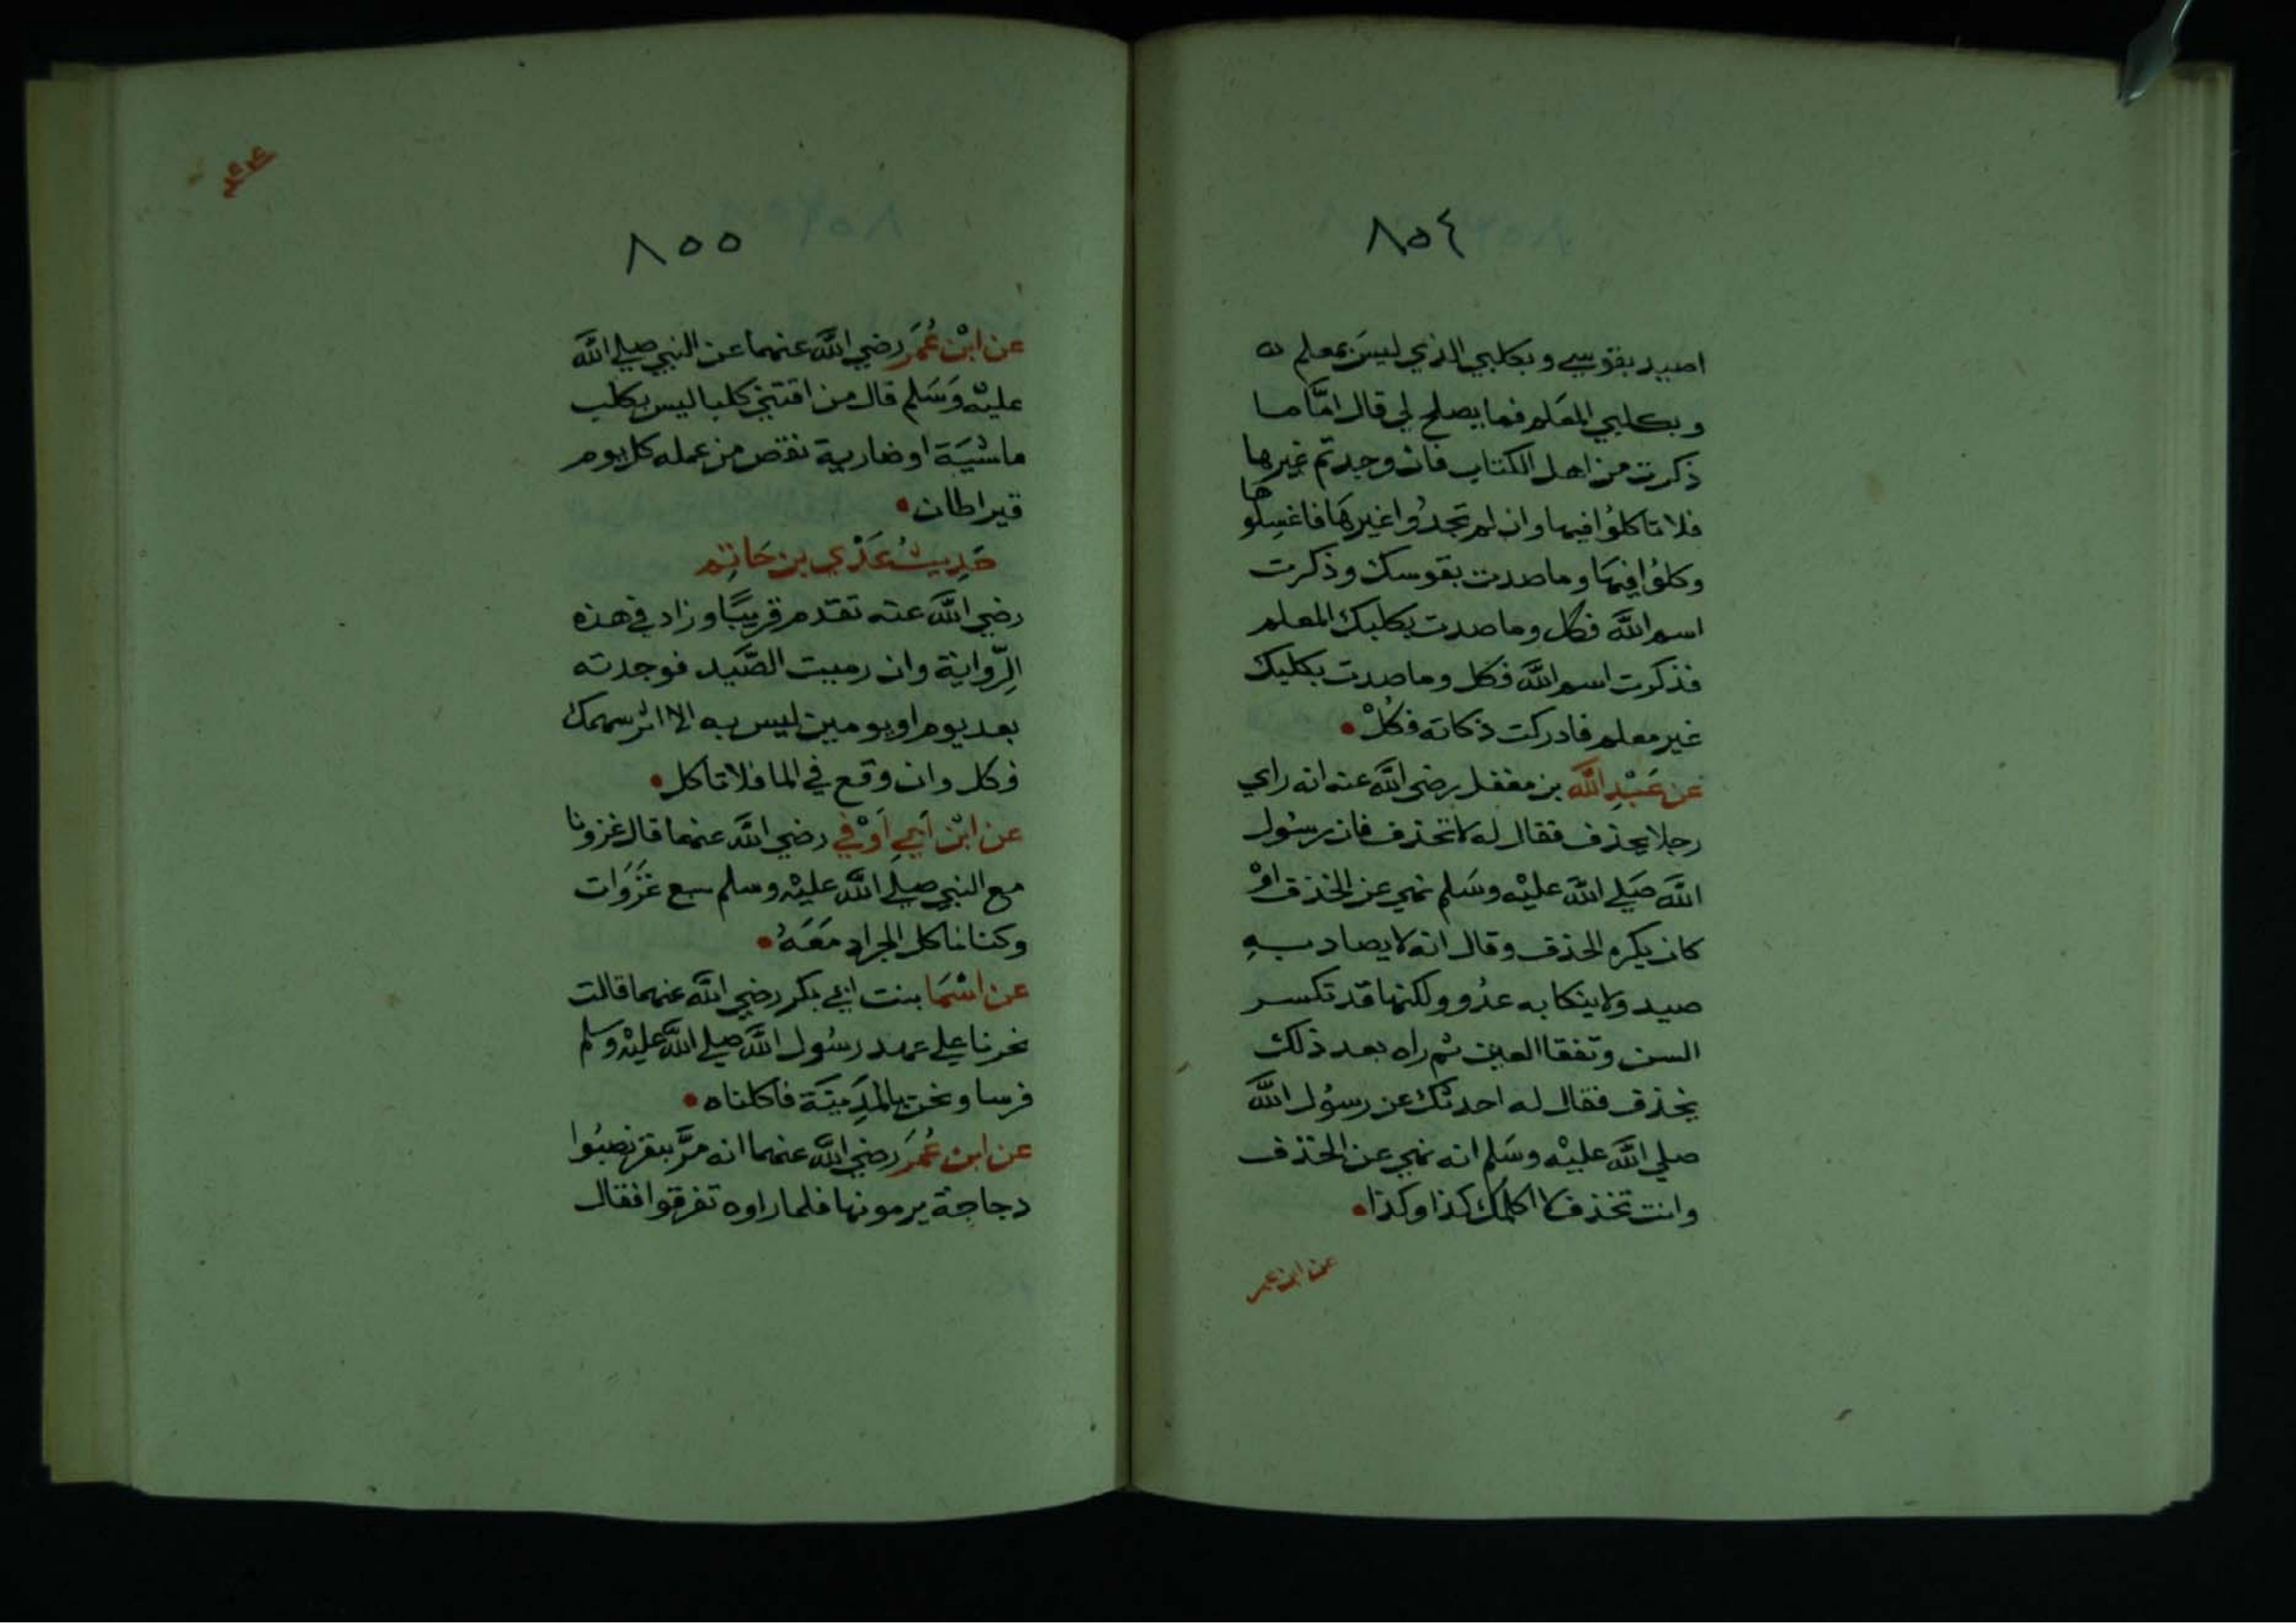 ٨٥٤
اصيد بقوسي وبكلبي الذي ليسَ بمعلم
وبكلبي المعَلم فما يصلح لي قال امَّا ما
ذكرت من اهل الكتاب فان وجدتم غيرها
فلا تاكلوُا فيها وان لم تجدُوا غيرهَا فاغسِلوها
وكلوُا فيهَا وما صدت بقوسك وذكرت
اسم اللَّه فكل وما صدت بكلبك المعلم
فذكرت اسم اللَّه فكل وما صدت بكلبك
غير معلم فادركت ذكاته فكُلْ
عن عَبْدِ اللَّه بن مغفل رضي اللَّه عنه انه راي
رجلا يخذف فقال له لا تخذف فان رسُول
اللَّه صَلي اللَّه عليْه وسَلم نهي عن الخذف اوْ
كان يكره الخذف وقال انه لا يصاد بهِ
صيد ولا ينكا به عدُو ولكنها قد تكسر
السن وتفقا العين ثم راه بعد ذلك
يخذف فقال له احدثك عن رسُول اللَّه
صلي اللَّه عليْه وسَلم انه نهي عن الخذف
وانت تخذف لا اكلمك كذا وكذا
عن ابن عمر
٨٥٥
عن ابْن عُمَر رضي اللَّه عنهما عن النبي صلي اللَّه
عليْه وَسَلم قال من اقتني كلبا ليس بكلب
ماشيَة او ضارية نقص من عمله كل يوم
قيراطان
حَدِيثُ عَدْي بن حَاتِم
رضي اللَّه عنه تقدم قريبًا وزاد في هذه
الرّواية وان رميت الصَّيد فوجدته
بعد يوم او يومين ليس به الا اثر سهمك
فكل وان وقع في الما فلا تاكل
عن ابْن اَبي اَوْفي رضي اللَّه عنهما قال غزونا
مع النبي صلي اللَّه عليْه وسلم سبع غَزَوَات
وكنا ناكل الجراد مَعَهُ
عن اسْمَا بنت ابي بكر رضي اللَّه عنهما قالت
نحرنا علي عهد رسُول اللَّه صلي اللَّه عليْه وسلم
فرسا ونحن بالمَدِينَة فاكلناه
عن ابن عُمَر رضي اللَّه عنهما انه مَرَّ بنفر نصبُوا
دجاجة يرمونها فلما راوه تفرقوا فقال